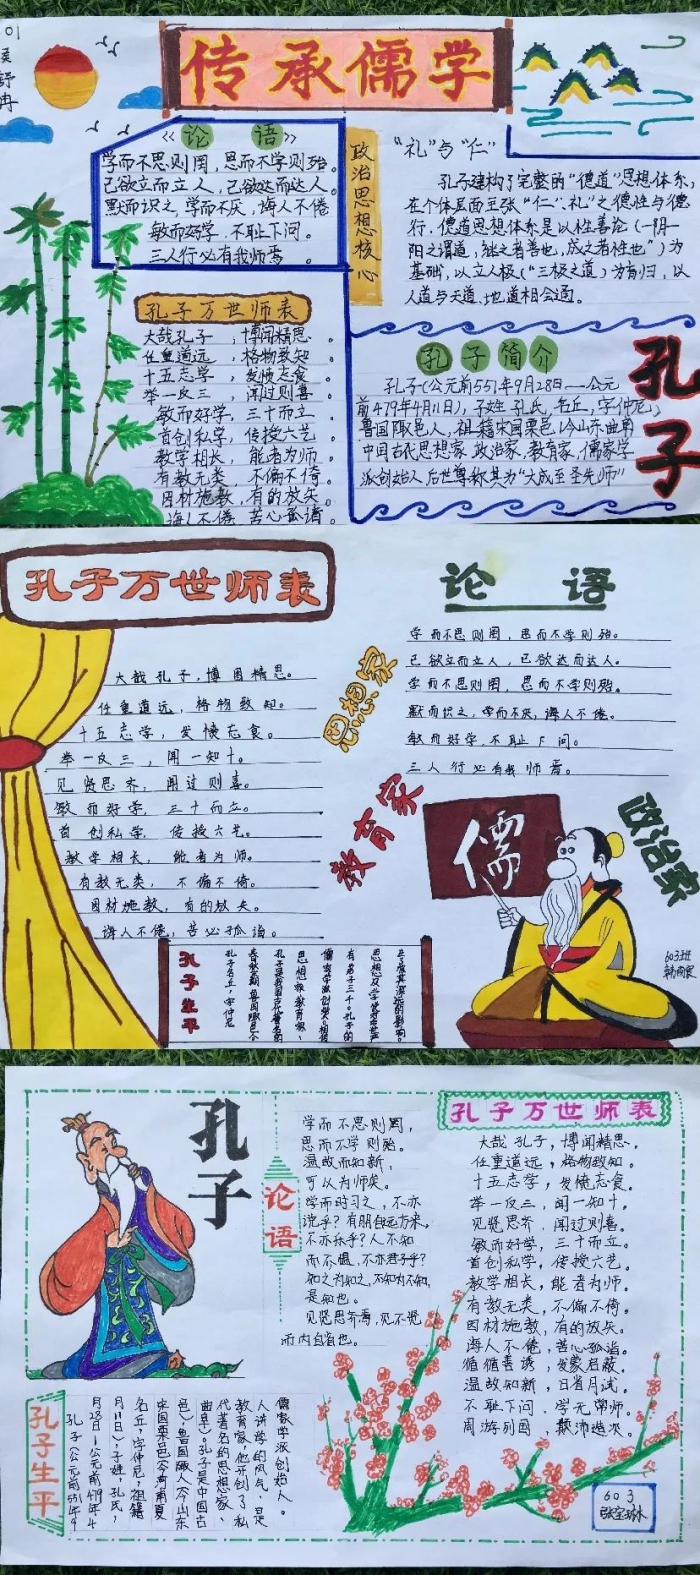 01
传承儒学
《论语》
学而不思则罔，思而不学则殆。
己欲立而立人，己欲达而达人。
默而识之，学而不厌，诲人不倦
敏而好学，不耻下问。
三人行必有我师焉。
政治思想核心
“礼”与“仁”
孔子建构了完整的“德道”思想体系，
在个体层面主张“仁、礼”之德性与德
行，德道思想体系是以性善论（一阴一
阳之谓道，继之者善也，成之者性也”）为
基础，以立人极（“三极之道）为旨归，以
人道与天道、地道相会通。
孔子万世师表
大哉孔子，博闻精思。
任重道远，格物致知。
十五志学，发愤忘食。
举一反三，闻过则喜。
敏而好学，三十而立。
首创私学，传授六艺。
教学相长，能者为师。
有教无类，不偏不倚。
因材施教，有的放矢。
诲人不倦，苦心孤诣。
孔子简介
孔子（公元前551年9月28日—公元
前479年4月11日），子姓孔氏，名丘，字仲尼，
鲁国陬邑人，祖籍宋国栗邑，
中国古代思想家、政治家、教育家，儒家学
派创始人，后世尊称其为“大成至圣先师”
孔子
孔子万世师表
大哉孔子，博闻精思。
任重道远，格物致知。
十五志学，发愤忘食。
举一反三，闻一知十。
见贤思齐，闻过则喜。
敏而好学，三十而立。
首创私学，传授六艺。
教学相长，能者为师。
有教无类，不偏不倚。
因材施教，有的放矢。
诲人不倦，苦心孤诣。
论语
学而不思则罔，思而不学则殆。
己欲立而立人，己欲达而达人。
学而不思则罔，思而不学则殆。
默而识之，学而不厌，诲人不倦。
敏而好学，不耻下问。
三人行必有我师焉。
思想家
教育家
政治家
儒
603班
孔子生平
孔子名丘，字仲尼
春秋末期鲁国陬邑人
孔子是我国古代著名的
思想家教育家、
儒家学派创始人相传
有弟子三千，孔子的
思想及学说对后世产
生了极其深远的影响。
孔子
论语
学而不思则罔，
思而不学则殆。
温故而知新，
可以为师矣。
学而时习之，不亦
说乎？有朋自远方来，
不亦乐乎？人不知
而不愠，不亦君子乎？
知之为知之，不知为不知，
是知也。
见贤思齐焉，见不贤
而内自省也。
孔子万世师表
大哉孔子，博闻精思。
任重道远，格物致知。
十五志学，发愤忘食。
举一反三，闻一知十。
见贤思齐，闻过则喜。
敏而好学，三十而立。
首创私学，传授六艺。
教学相长，能者为师。
有教无类，不偏不倚。
因材施教，有的放矢。
诲人不倦，苦心孤诣。
循循善诱，发蒙启蔽。
温故知新，日省月试。
不耻下问，学无常师。
周游列国，颠沛造次。
孔子生平
孔子（公元前551年9
月28日—公元前479年4
月11日），子姓，孔氏，
名丘，字仲尼，祖籍
宋国栗邑（今河南夏
邑），鲁国陬人（今山东
曲阜）。孔子是中国古
代著名的思想家、
教育家，他开创了私
人讲学的风气，是
儒家学派创始人。
603